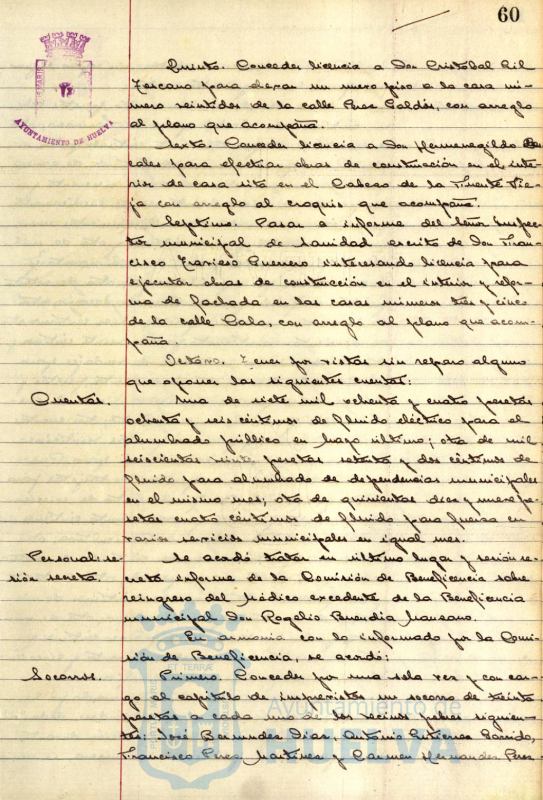 60
AYUNTAMIENTO DE HUELVA
Quinto. Conceder licencia a Don Cristobal Gil
para elevar un nuevo piso a la casa nú-
mero veintidos de la calle Perez Galdós, con arreglo
al plano que acompaña.
Sexto. Conceder licencia a Don Hermenegildo
cales para efectuar obras de construcción en el inte-
rior de casa sita en el Cabezo de la Fuente Vie-
ja con arreglo al croquis que acompaña.
Septimo. Pasar a informe del Señor Inspec-
tor municipal de Sanidad escrito de Don Fran-
cisco Guerrero interesando licencia para
ejecutar obras de construcción en el interior y refor-
ma de fachada en las casas números tres y cinco
de la calle Cala, con arreglo al plano que acom-
paña.
Octavo. Tener por vistas sin reparo alguno
que oponer las siguientes cuentas:
Cuentas.
Una de siete mil ochenta y cuatro pesetas
ochenta y seis céntimos de fluido eléctrico para el
alumbrado público en Mayo último; otra de mil
seiscientas veinte pesetas setenta y dos céntimos de
fluido para alumbrado de dependencias municipales
en el mismo mes; otra de quinientas diez y nueve pe-
setas cuatro céntimos de fluido para fuerza en
varios servicios municipales en igual mes.
Personal: se-
sión secreta.
Se acordó tratar en último lugar y sesión se-
creta informe de la Comisión de Beneficencia sobre
reingreso del Médico excedente de la Beneficencia
municipal Don Rogelio Buendia Manzano.
En armonía con lo informado por la Comi-
sión de Beneficencia, se acordó:
Socorros.
Primero. Conceder por una sola vez y con car-
go al capitulo de imprevistos un socorro de treinta
pesetas a cada uno de los vecinos pobres siguien-
tes: José Bermudez Diaz, Antonio Gutierrez Garrido,
Francisco Perez Martinez y Carmen Hernandez Perez-
Ayuntamiento de
HUELVA